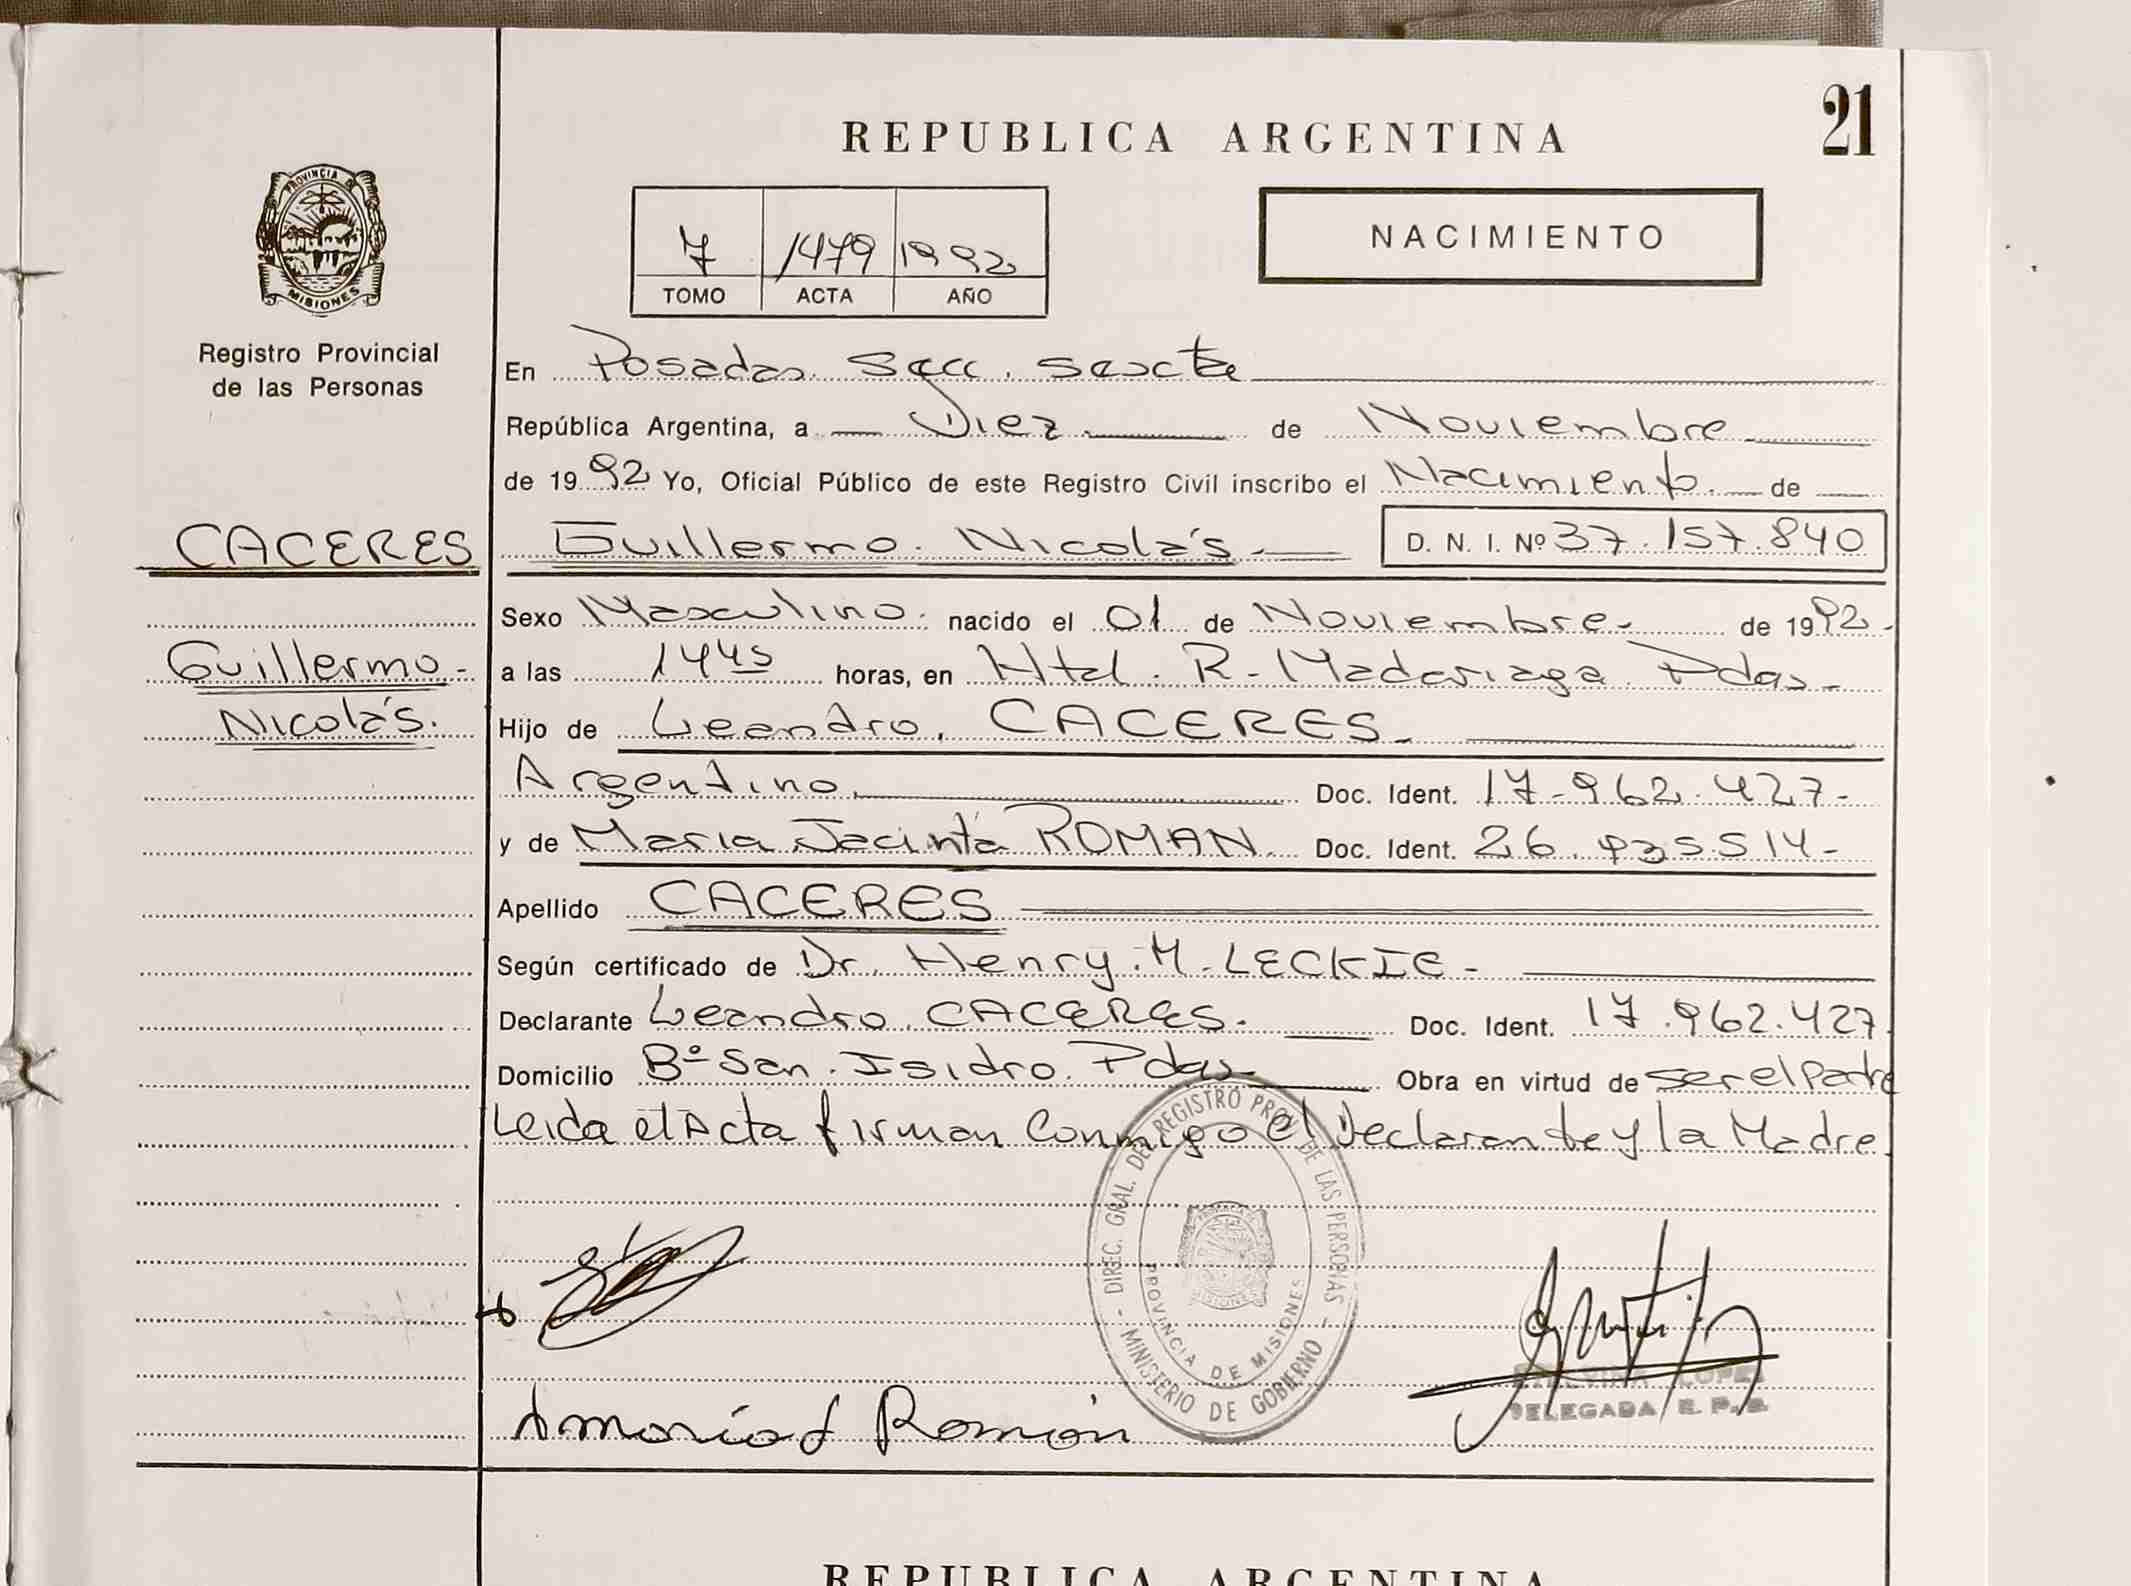 21
REPUBLICA ARGENTINA
NACIMIENTO
7 1479 1992
TOMO ACTA AÑO
PROVINCIA DE
MISIONES
Registro Provincial
de las Personas
En Posadas Secc. Sexta
República Argentina, a Diez de Noviembre
de 1992 Yo, Oficial Público de este Registro Civil inscribo el Nacimiento de
CACERES Guillermo Nicolás. D. N. I. Nº 37.157.840
Sexo Masculino. nacido el 01 de Noviembre de 1992
Guillermo
Nicolás.
a las 1445 horas, en Htal. R. Madariaga Pdas
Hijo de Leandro, CACERES
Argentino Doc. Ident. 17.962.427
y de Maria Jacinta ROMAN Doc. Ident. 26.935.514
Apellido CACERES
Según certificado de Dr. Henry M. LECKIE
Declarante Leandro CACERES. Doc. Ident. 17.962.427
Domicilio Bº San Isidro Pdas Obra en virtud de ser el Padre
Leida el Acta firman Conmigo el Declarante y la Madre
DIREC. GRAL. DEL REGISTRO PROV. DE LAS PERSONAS
MINISTERIO DE GOBIERNO
PROVINCIA DE MISIONES
MISIONES
LOPEZ
DELEGADA R. P. P.
Román
REPUBLICA ARGENTINA